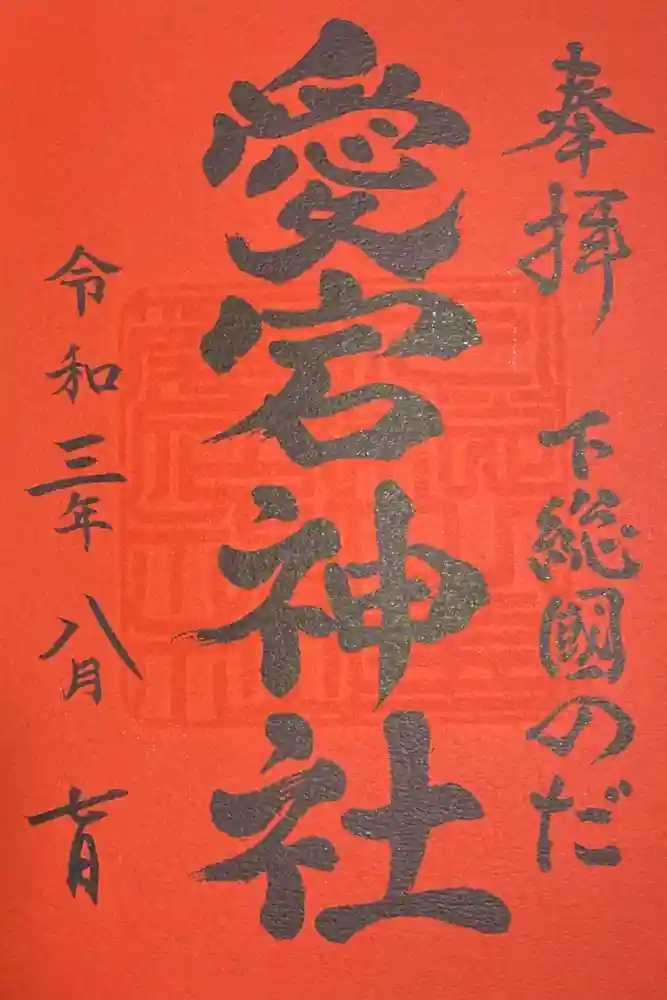 奉拝
下総國のだ
愛宕神社
令和三年八月七日